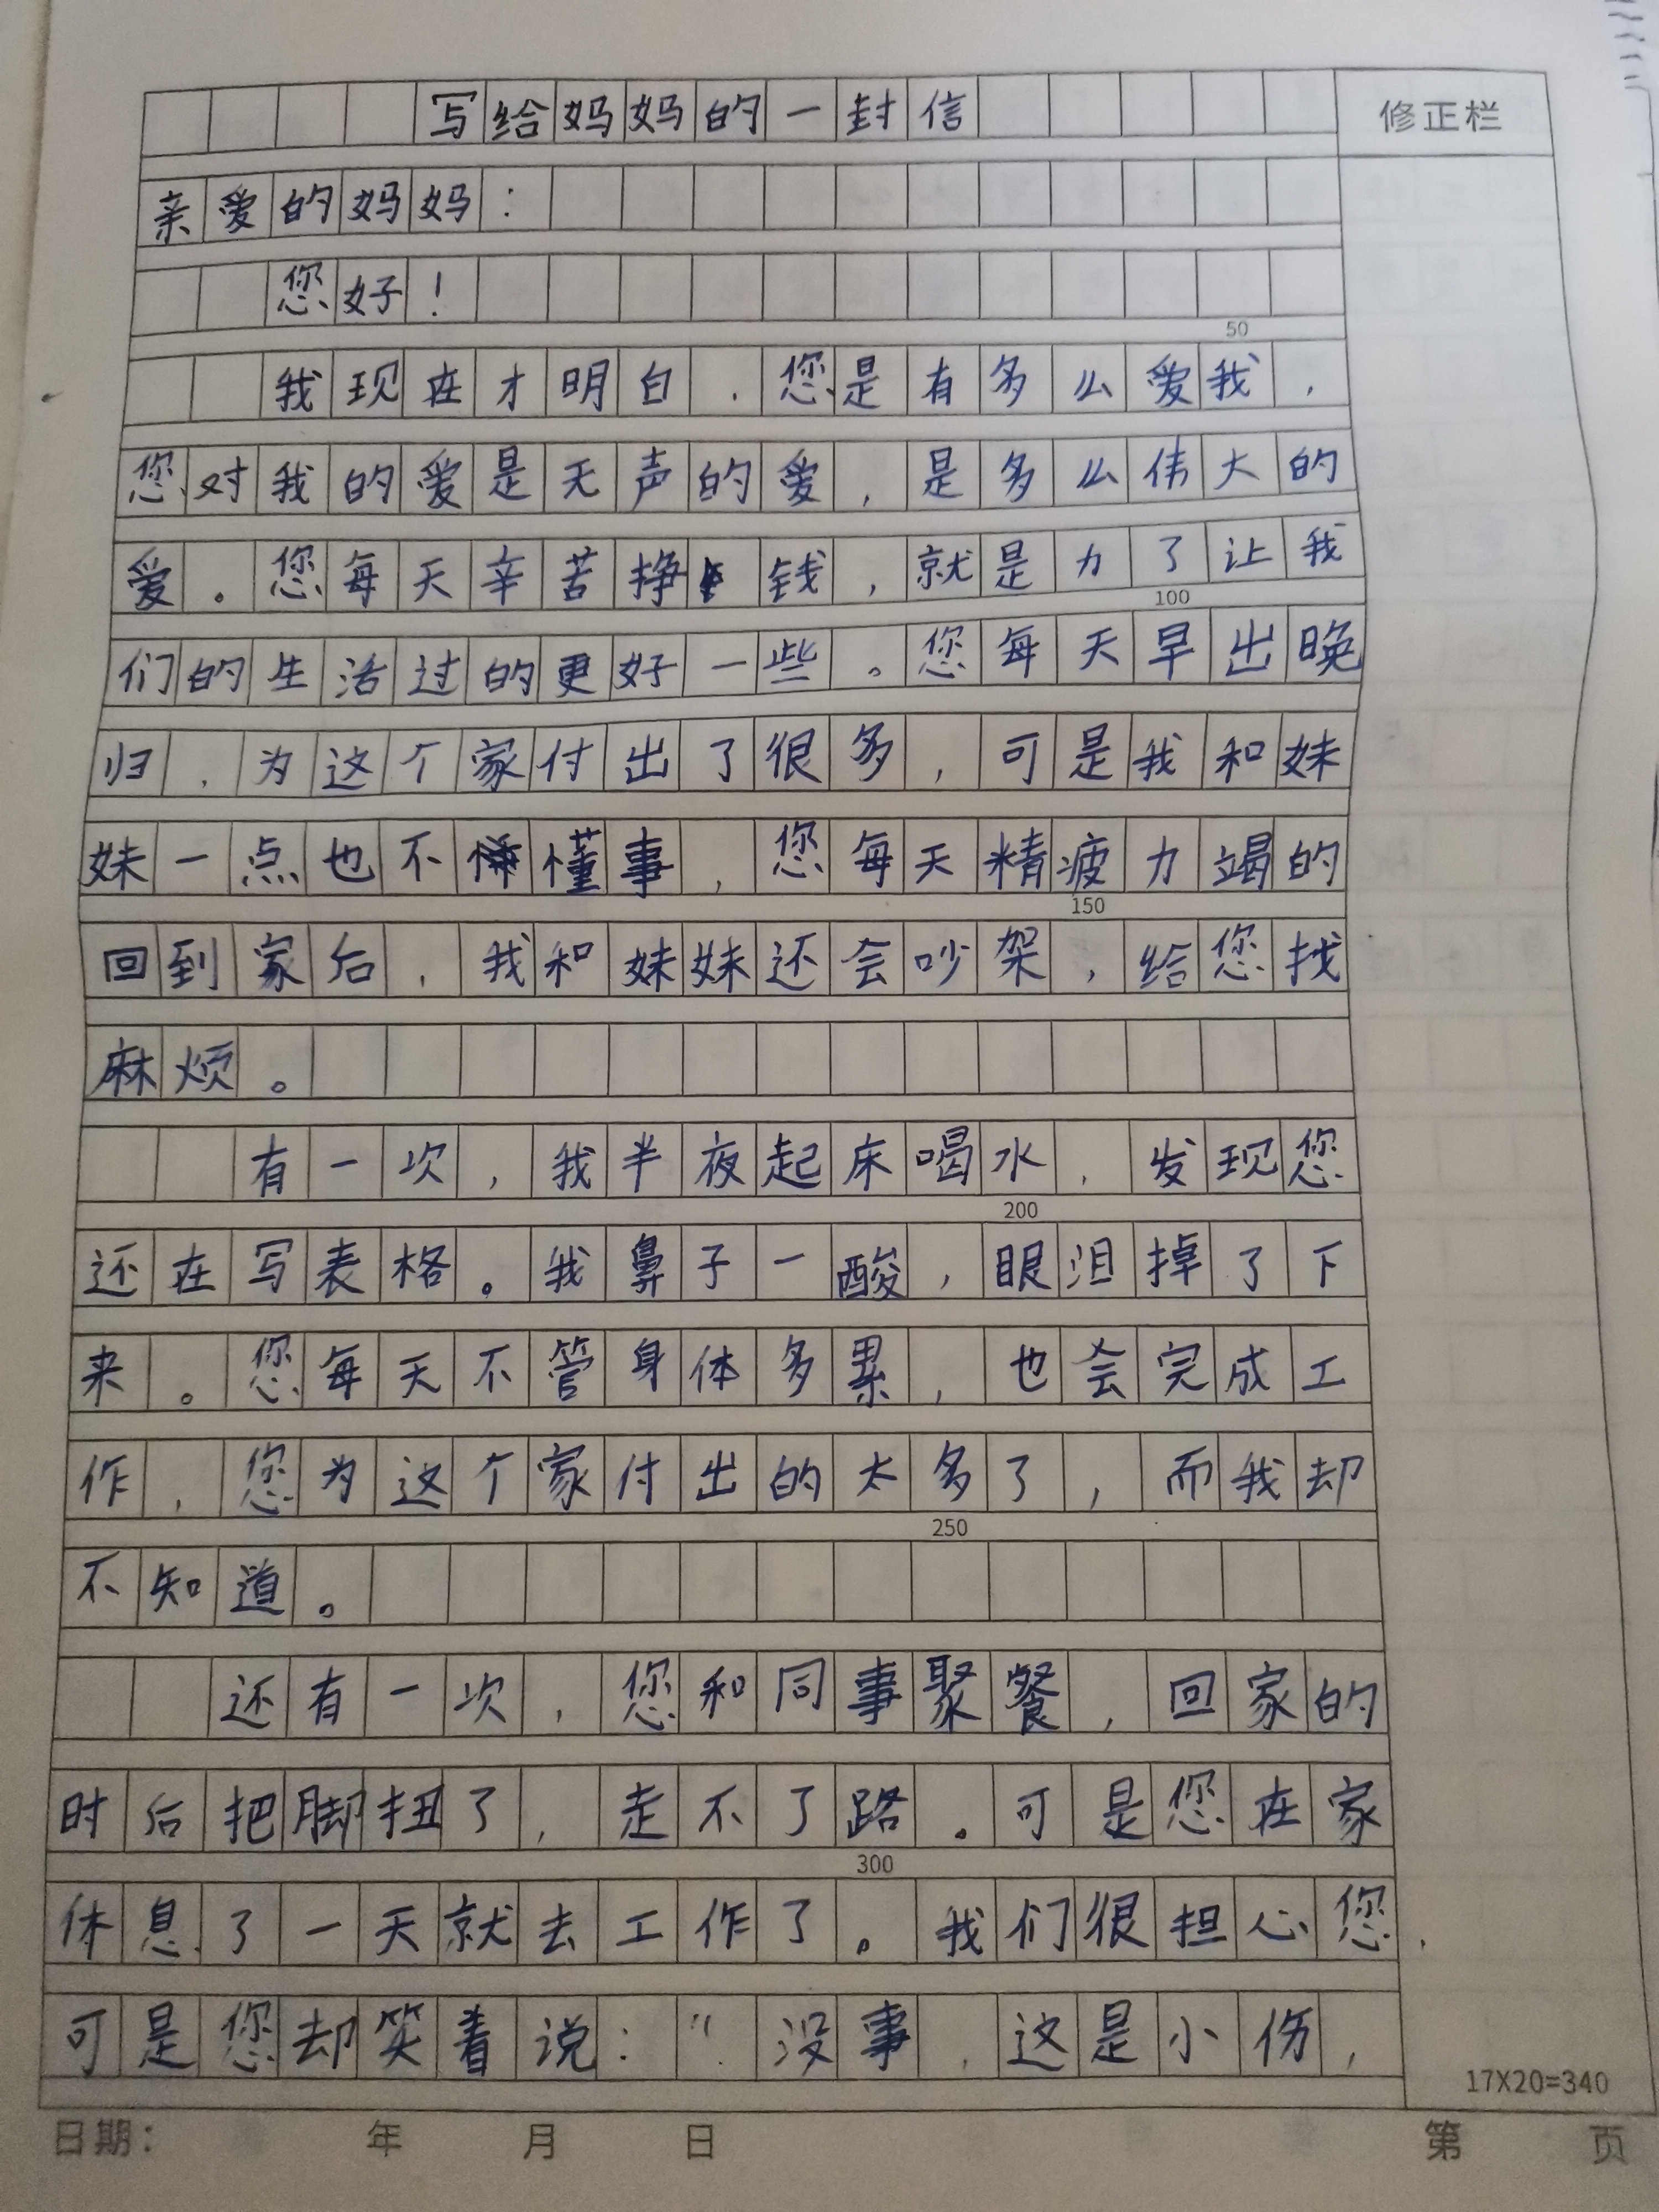 写给妈妈的一封信
修正栏
亲爱的妈妈：
您好！
50
我现在才明白，您是有多么爱我，
您对我的爱是无声的爱，是多么伟大的
爱。您每天辛苦挣钱，就是力了让我
100
们的生活过的更好一些。您每天早出晚
归，为这个家付出了很多，可是我和妹
妹一点也不懂事，您每天精疲力竭的
150
回到家后，我和妹妹还会吵架，给您找
麻烦。
有一次，我半夜起床喝水，发现您
200
还在写表格。我鼻子一酸，眼泪掉了下
来。您每天不管身体多累，也会完成工
作，您为这个家付出的太多了，而我却
250
不知道。
还有一次，您和同事聚餐，回家的
时后把脚扭了，走不了路。可是您在家
300
休息了一天就去工作了。我们很担心您，
可是您却笑着说：“没事，这是小伤，
17X20=340
日期： 年 月 日 第 页